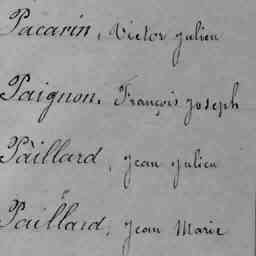 Pacarin, Victor Julien
Paignon, François Joseph
Paillard, Jean Julien
Paillard, Jean Marie